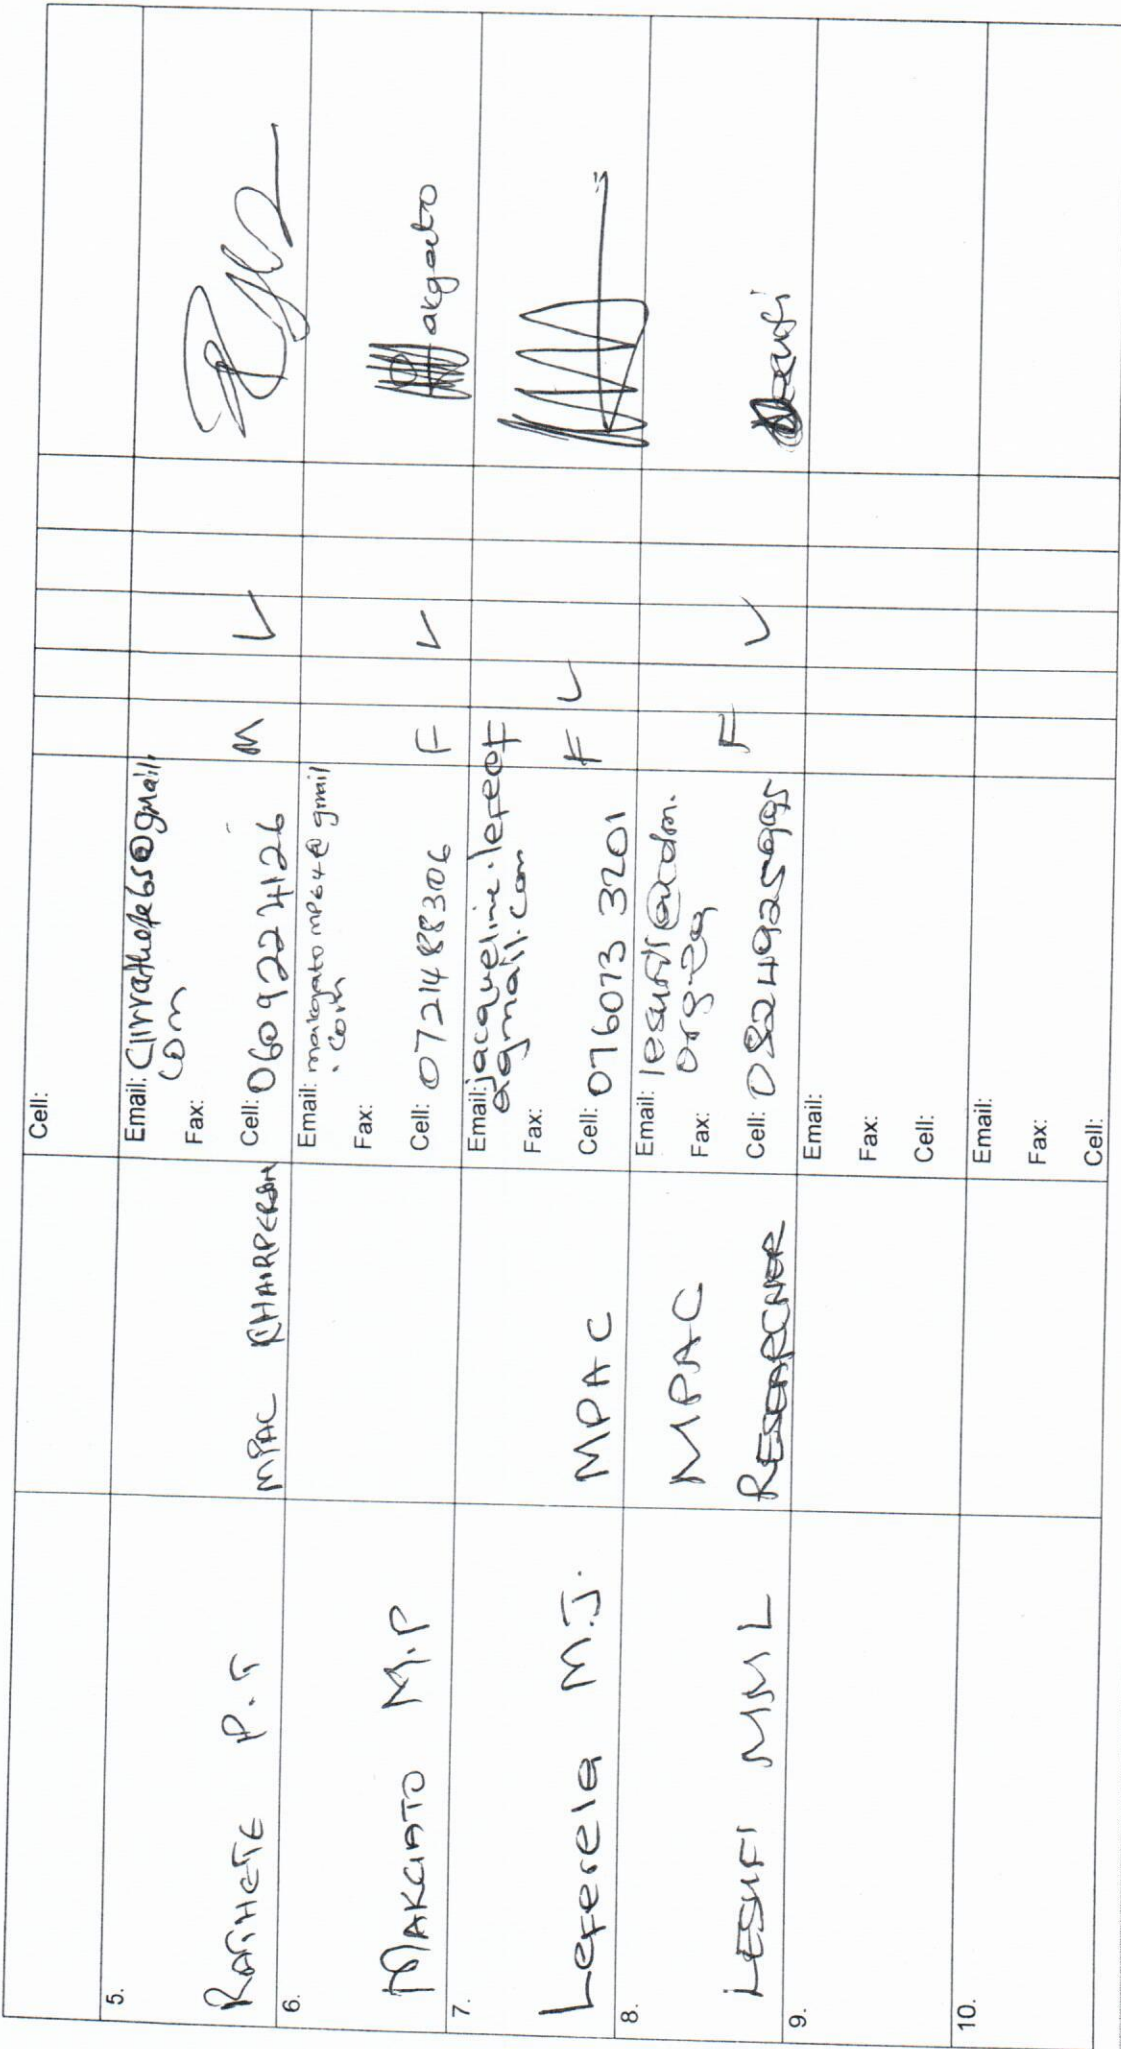 Cell:
5.
RATHETE P.T
MPAC CHAIRPERSON
Email: Cllrrathete65@gmail.
com
Fax:
Cell: 060 922 4126
M
6.
MAKGATO M.P
Email: makgato mp64@gmail
.com
Fax:
Cell: 0721488306
F
akgato
7.
Leferela M.J.
MPAC
Email: jacqueline.lefeof
@gmail.com
Fax:
Cell: 076073 3201
F
8.
LESUFI MML
MPAC
RESEARCHER
Email: lesufi@cdm.
org.za
Fax:
Cell: 0824925995
F
9.
Email:
Fax:
Cell:
10.
Email:
Fax:
Cell: